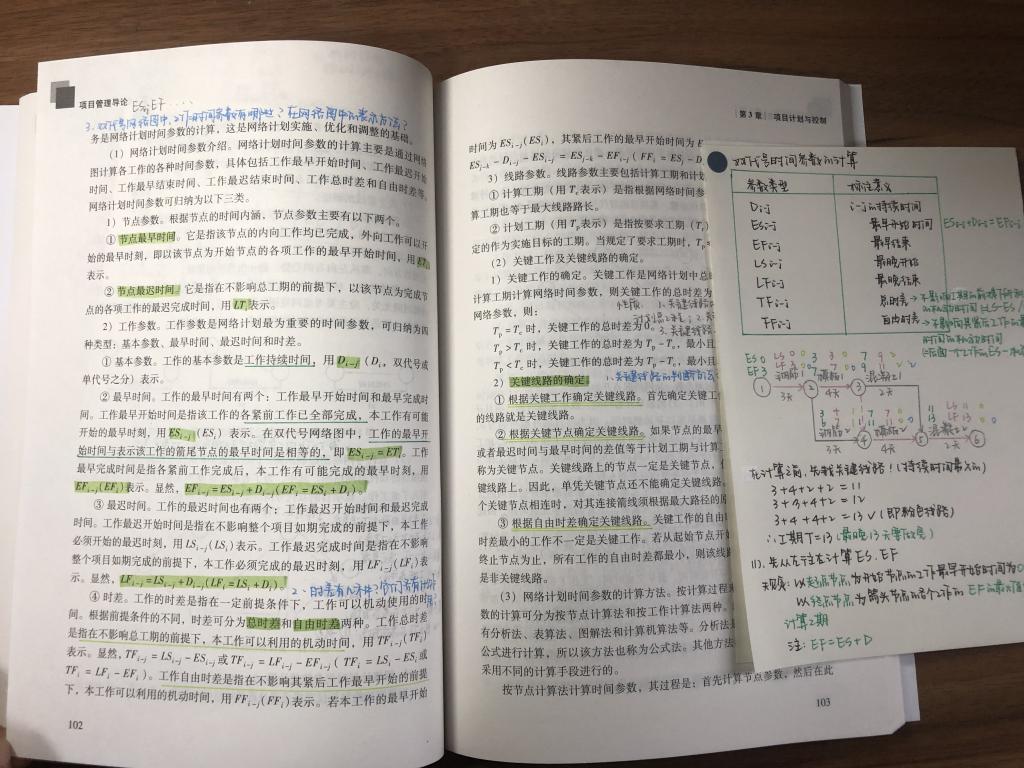 项目管理导论
ES, EF ....
3. 双代号网络图中,工作时间参数有哪些?在网络图中的表示方法?
务是网络计划时间参数的计算,这是网络计划实施、优化和调整的基础。
(1)网络计划时间参数介绍。网络计划时间参数的计算主要是通过网络
图计算各工作的各种时间参数,具体包括工作最早开始时间、工作最迟开始
时间、工作最早结束时间、工作最迟结束时间、工作总时差和自由时差等。
网络计划时间参数可归纳为以下三类。
1)节点参数。根据节点的时间内涵,节点参数主要有以下两个。
①节点最早时间。它是指该工作的内向工作均已完成,外向工作可以开
始的最早时刻,即以该节点为开始节点的各项工作的最早开始时间,用ETi
表示。
②节点最迟时间。它是指在不影响总工期的前提下,以该节点为完成节
点的各项工作的最迟完成时间,用LTi表示。
2)工作参数。工作参数是网络计划最为重要的时间参数,可归纳为四
种类型:基本参数、最早时间、最迟时间和时差。
①基本参数。工作的基本参数是工作持续时间,用Di-j(Di,双代号或
单代号之分)表示。
②最早时间。工作的最早时间有两个:工作最早开始时间和最早完成时
间。工作最早开始时间是指该工作的各紧前工作已全部完成,本工作有可能
开始的最早时刻,用ESi-j(ESi)表示。在双代号网络图中,工作的最早开
始时间与表示该工作的箭尾节点的最早时间是相等的,即ESi-j=ETi。工作
最早完成时间是指各紧前工作完成后,本工作有可能完成的最早时刻,用
EFi-j(EFi)表示。显然,EFi-j=ESi-j+Di-j(EFi=ESi+Di)。
③最迟时间。工作的最迟时间也有两个:工作最迟开始时间和最迟完成
时间。工作最迟开始时间是指在不影响整个项目如期完成的前提下,本工作
必须开始的最迟时刻,用LSi-j(LSi)表示。工作最迟完成时间是指在不影响
整个项目如期完成的前提下,本工作必须完成的最迟时刻,用LFi-j(LFi)表
示。显然,LFi-j=LSi-j+Di-j(LFi=LSi+Di)。
④时差。工作的时差是指在一定前提条件下,工作可以机动使用的时
间。根据前提条件的不同,时差可分为总时差和自由时差两种。工作总时差
是指在不影响总工期的前提下,本工作可以利用的机动时间,用TFi-j(TFi)
表示。显然,TFi-j=LSi-j-ESi-j或TFi-j=LFi-j-EFi-j(TFi=LSi-ESi或
TFi=LFi-EFi)。工作自由时差是指在不影响其紧后工作最早开始的前提
下,本工作可以利用的机动时间,用FFi-j(FFi)表示。若本工作的最早开始
102
第3章 项目计划与控制
时间为ESi-j(ESi),其紧后工作的最早开始时间为E
ESj-k-Di-j-ESi-j=ESj-k-EFi-j(FFi=ESj-D
3)线路参数。线路参数主要包括计算工期和计划
①计算工期(用Tc表示)是指根据网络时间参
算工期也等于最大线路路长。
②计划工期(用Tp表示)是指按要求工期(Tr)
定的作为实施目标的工期。当规定了要求工期时,Tp
(2)关键工作及关键线路的确定。
1)关键工作的确定。关键工作是网络计划中总
计算工期计算网络时间参数,则关键工作的总时差为
网络参数,则:
Tp=Tc时,关键工作的总时差为0。
Tp>Tc时,关键工作的总时差为Tp-Tc,最小且
Tp<Tc时,关键工作的总时差为Tp-Tc,最小且
2)关键线路的确定。
①根据关键工作确定关键线路。首先确定关键工
的线路就是关键线路。
②根据关键节点确定关键线路。如果节点的最早
或者最迟时间与最早时间的差值等于计划工期与计算工
称为关键节点。关键线路上的节点一定是关键节点,但
键线路上。因此,单凭关键节点还不能确定关键线路。
个关键节点相连时,对其连接箭线须根据最大路径的原
③根据自由时差确定关键线路。关键工作的自由
时差最小的工作不一定是关键工作。若从起始节点开始
终止节点为止,所有工作的自由时差都最小,则该线路
是非关键线路。
(3)网络计划时间参数的计算方法。按计算过程
数的计算可分为按节点计算法和按工作计算法两种。
有分析法、表算法、图解法和计算机算法等。分析法是
公式进行计算,所以该方法也称为公式法。其他方法
采用不同的计算手段进行的。
按节点计算法计算时间参数,其过程是:首先计算节点参数,然后在此
103
双代号时间参数的计算
参数类型 标注意义
Di-j i-j的持续时间
ESi-j 最早开始时间 ESi-j+Di-j=EFi-j
EFi-j 最早结束
LSi-j 最晚开始
LFi-j 最晚结束
TFi-j 总时差
FFi-j 自由时差
在计算之前,先找关键线路!(持续时间最大的)
3+4+2+2=11
3+3+4+2=12
3+4+4+2=13√(即粉色线路)
∴工期T=13(最晚13天要做完)
(1). 先从左往右计算ES.EF
规律:以起点节点为开始节点的工作最早开始时间为0
以终点节点为箭头节点的各个工作的EF的最大值
计算工期
注:EF=ES+D